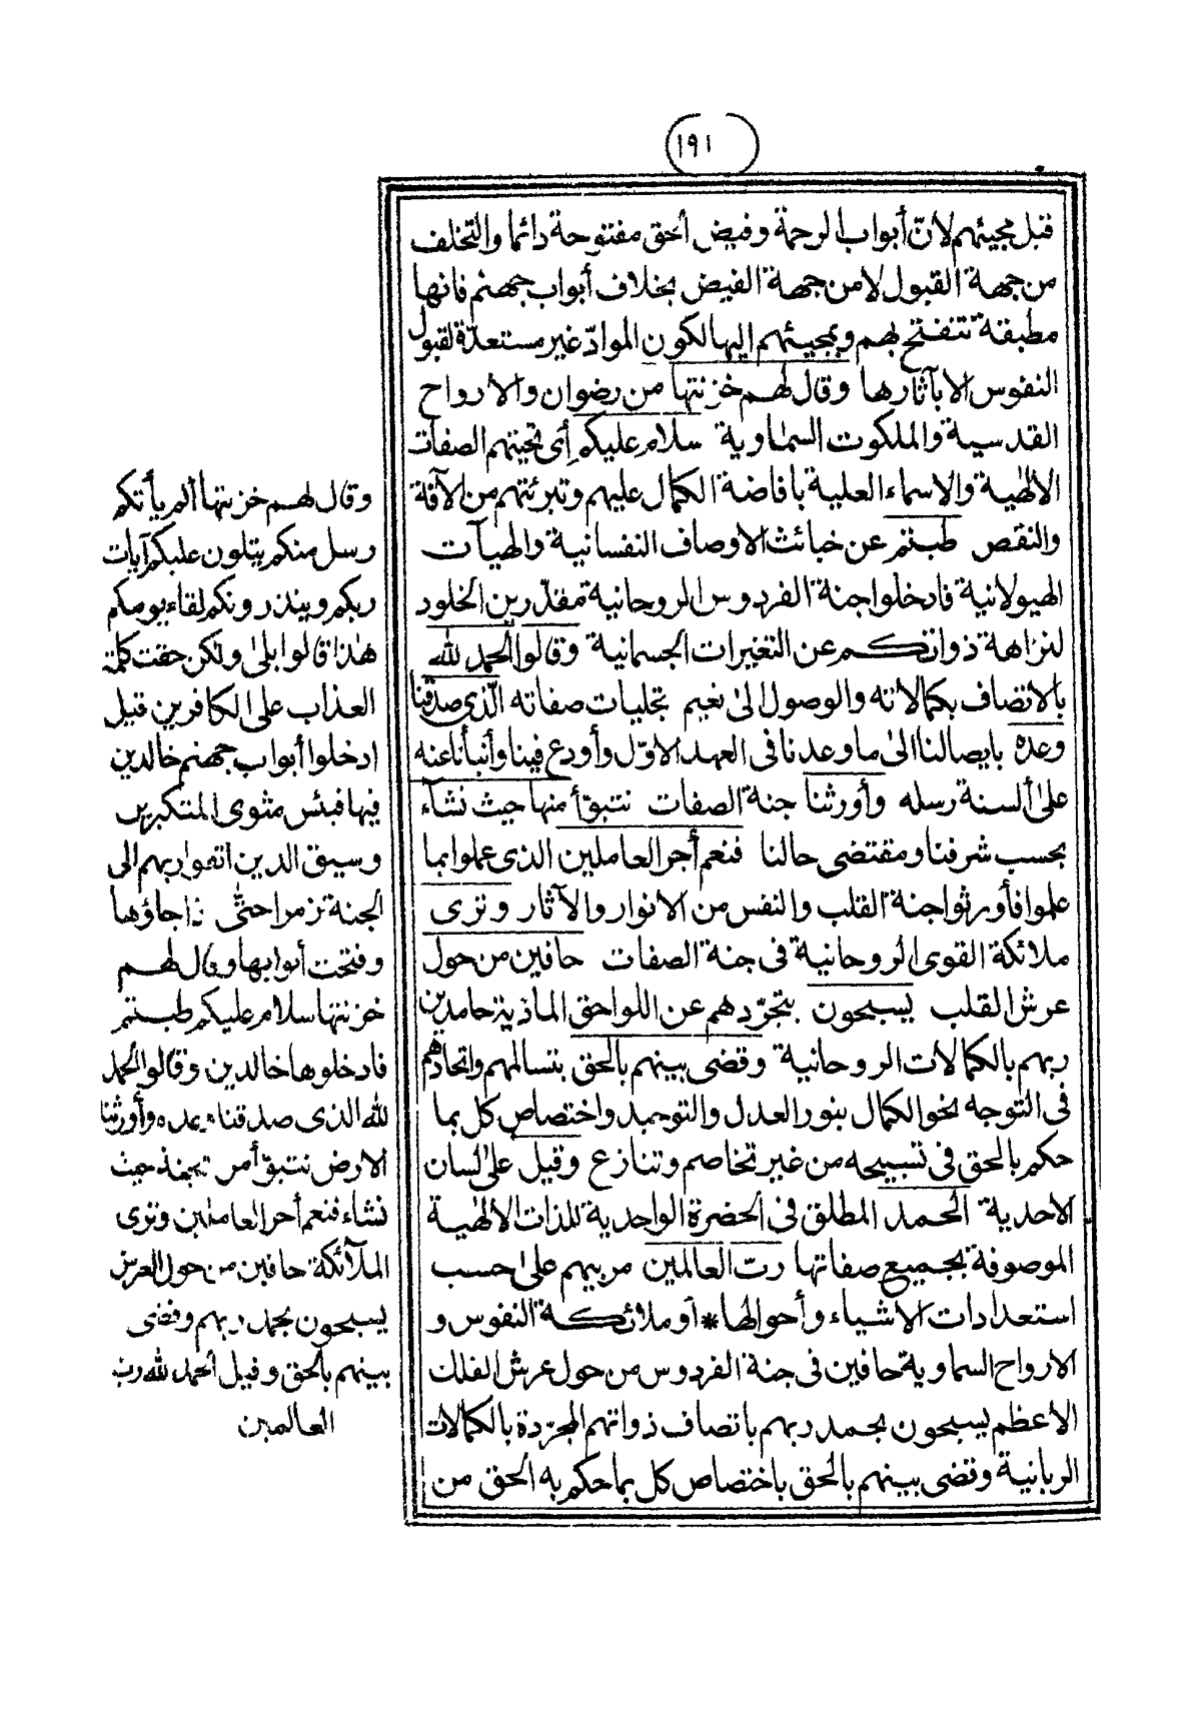 ١٩١
قبل مجيئهم لأنّ أبواب الرحمة وفيض الحق مفتوحة دائما والتخلف
من جهة القبول لا من جهة الفيض بخلاف أبواب جهنم فانها
مطبقة تتفتح بهم وبمجيئهم اليها لكون الموادّ غير مستعدّة لقبول
النفوس الا بآثارها وقال لهم خزنتها من رضوان والارواح
القدسية والملكوت السماوية سلام عليكم أى تحيتهم الصفات
الالهية والاسماء العلية بافاضة الكمال عليهم وتبرئتهم من الآفة
والنقص طبتم عن خبائث الاوصاف النفسانية والهيآت
الهيولانية فادخلوا جنة الفردوس الروحانية مقدّرين الخلود
لنزاهة ذواتكم عن التغيرات الجسمانية وقالوا الحمد لله
بالاتصاف بكمالاته والوصول الى نعيم تجليات صفاته الّذى صدقنا
وعده بايصالنا الى ما وعدنا فى العهد الاوّل وأودع فينا وأنبأنا عنه
على ألسنة رسله وأورثنا جنة الصفات نتبوّأ منها حيث نشاء
بحسب شرفنا ومقتضى حالنا فنعم أجر العاملين الذى عملوا بما
علموا فأورثوا جنة القلب والنفس من الانوار والآثار وترى
ملائكة القوى الروحانية فى جنة الصفات حافين من حول
عرش القلب يسبحون بتجرّدهم عن اللواحق المادّية حامدين
ربهم بالكمالات الروحانية وقضى بينهم بالحق بتسالمهم واتحادهم
فى التوجه نحو الكمال بنور العدل والتوحيد واختصاص كل بما
حكم بالحق فى تسبيحه من غير تخاصم وتنازع وقيل على لسان
الاحدية الحمد المطلق فى الحضرة الواحدية للذات الالهية
الموصوفة بجميع صفاتها ربّ العالمين مربيهم على حسب
استعدادات الاشياء وأحوالها * أو ملائكة النفوس و
الارواح السماوية حافين فى جنة الفردوس من حول عرش الفلك
الأعظم يسبحون بحمد ربهم باتصاف ذواتهم المجرّدة بالكمالات
الربانية وقضى بينهم بالحق باختصاص كل بما حكم به الحق من
وقال لهم خزنتها ألم يأتكم
رسل منكم يتلون عليكم آيات
ربكم وينذرونكم لقاء يومكم
هذا قالوا بلى ولكن حقت كلمة
العذاب على الكافرين قيل
ادخلوا أبواب جهنم خالدين
فيها فبئس مثوى المتكبرين
وسيق الذين اتقوا ربهم الى
الجنة زمرا حتّى اذا جاؤها
وفتحت أبوابها وقال لهم
خزنتها سلام عليكم طبتم
فادخلوها خالدين وقالوا الحمد
لله الذى صدقنا وعده وأورثنا
الارض نتبوّأ من الجنة حيث
نشاء فنعم أجر العاملين وترى
الملآئكة حافين من حول العرش
يسبحون بحمد ربهم وقضى
بينهم بالحق وقيل الحمد لله رب
العالمين